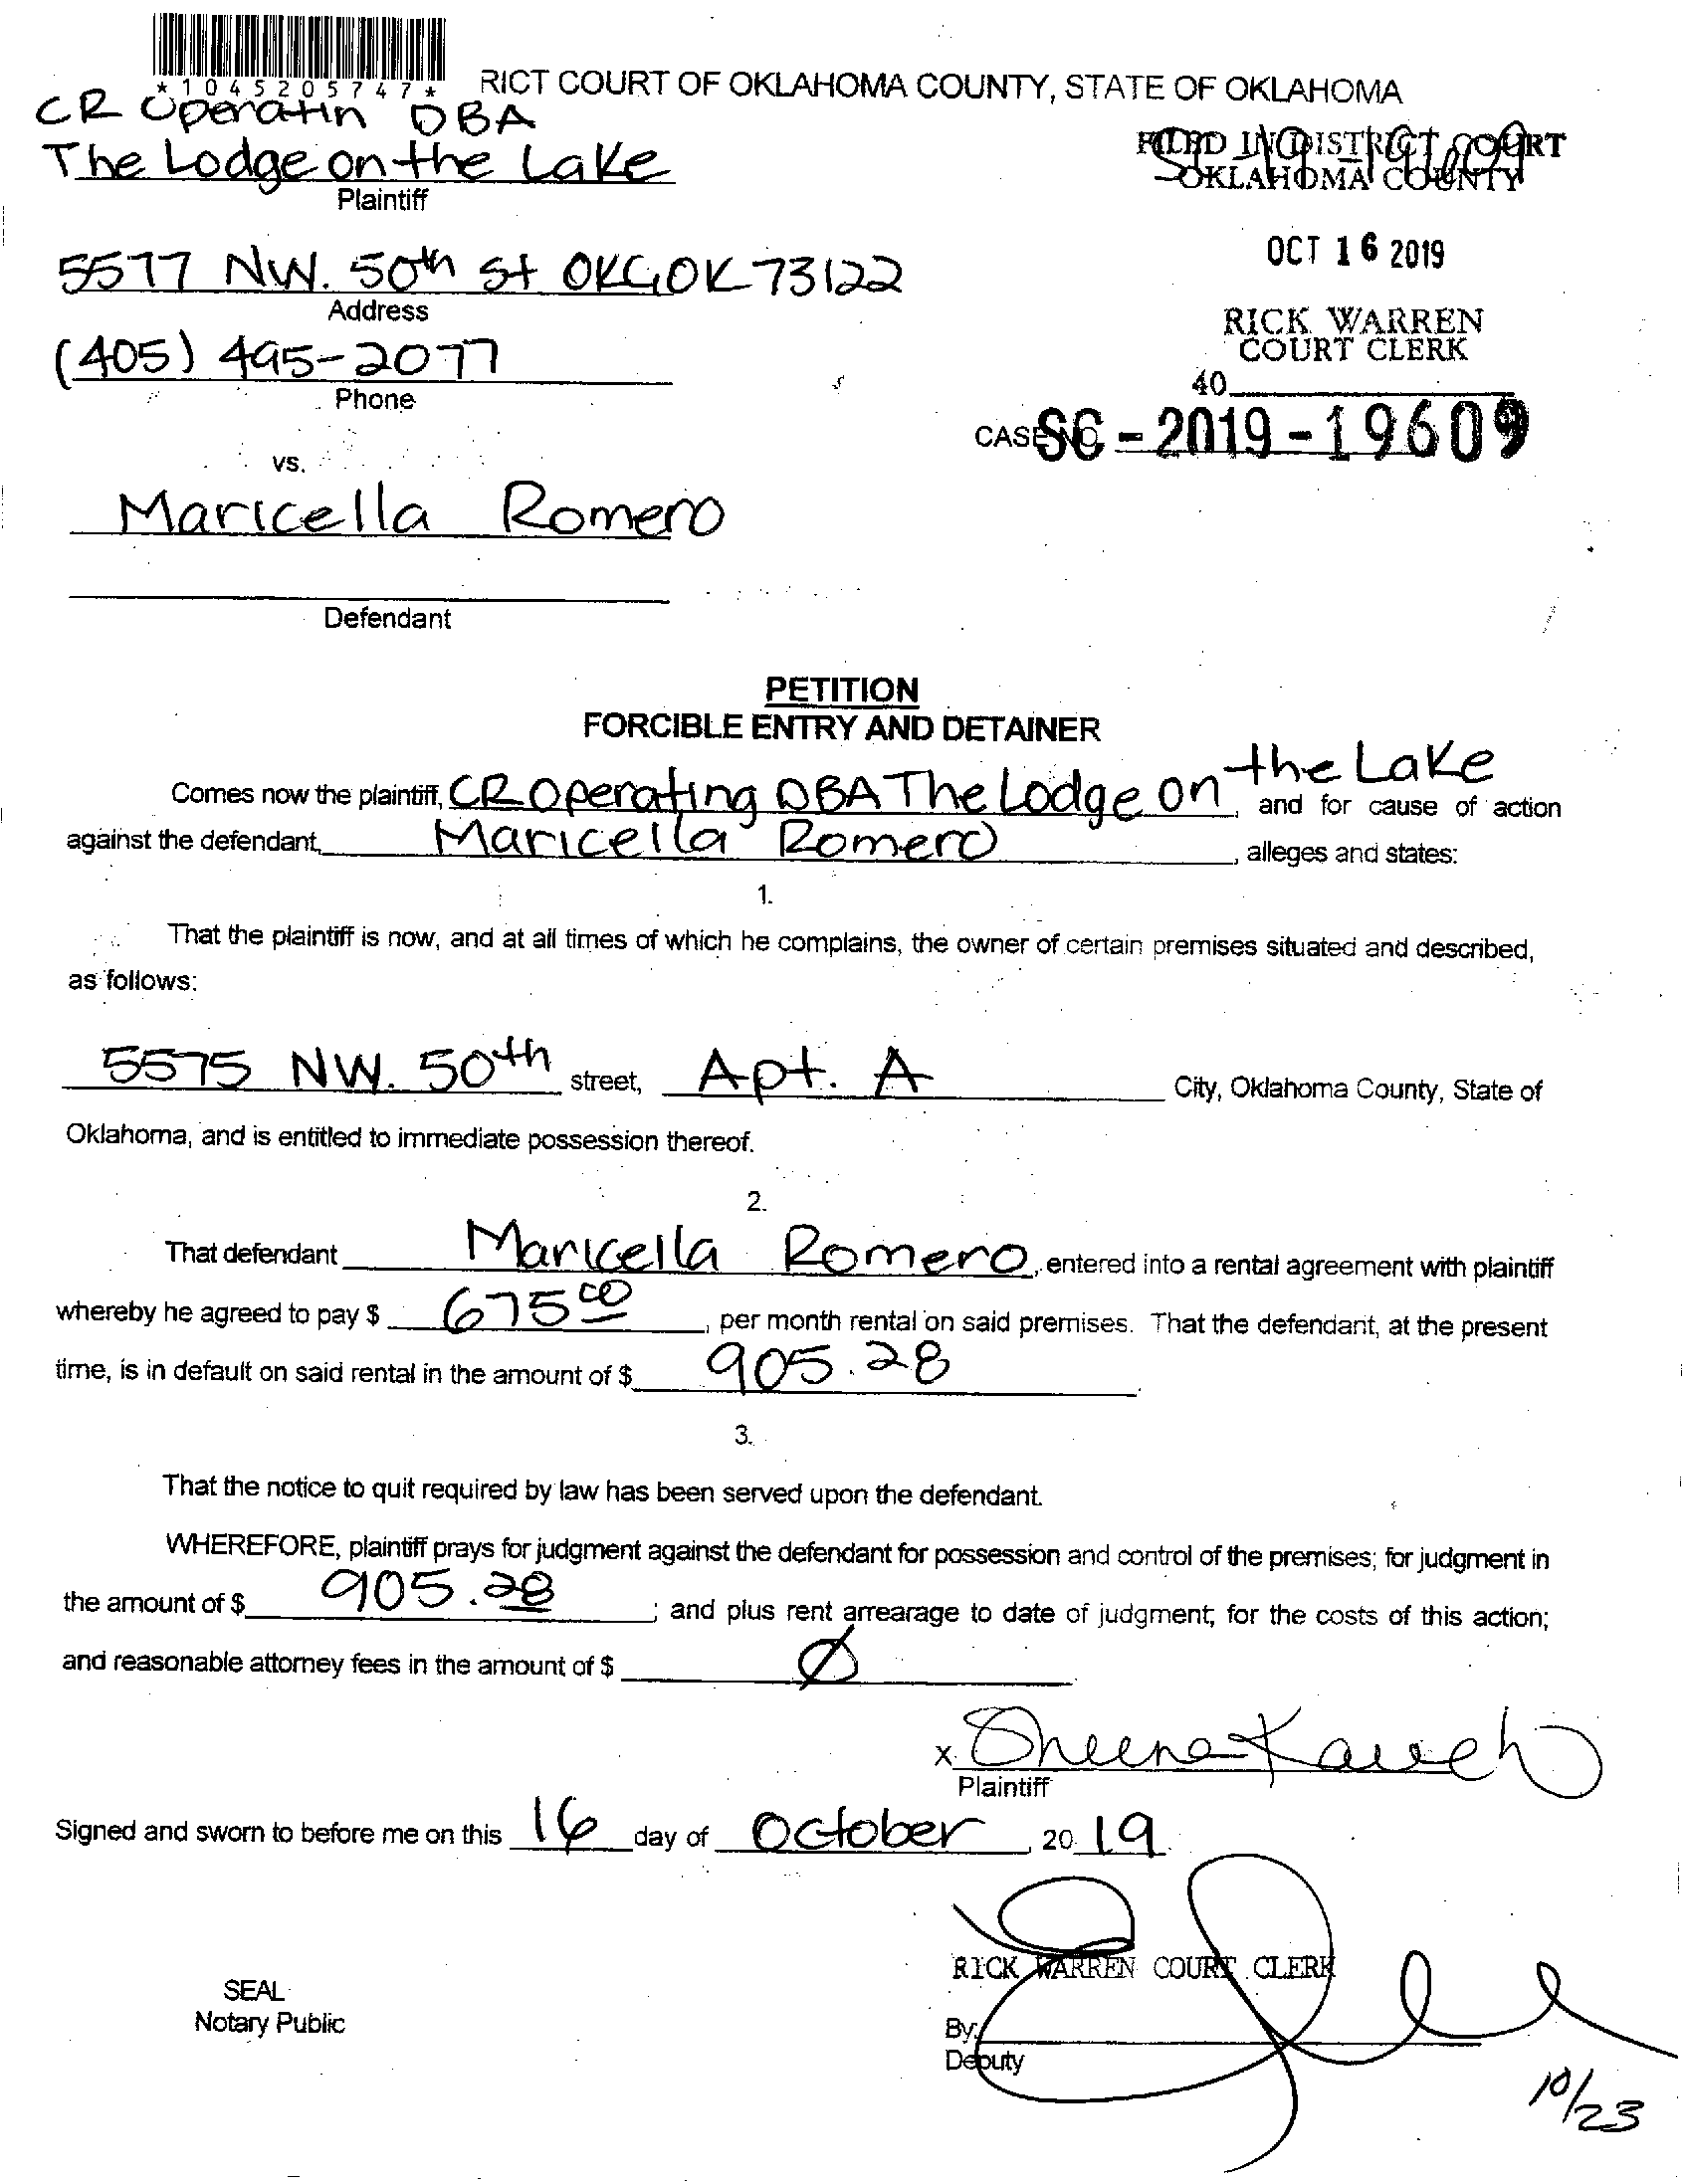 *1045205747*
RICT COURT OF OKLAHOMA COUNTY, STATE OF OKLAHOMA
CR Operatin DBA
The Lodge on the Lake
Plaintiff
FILED IN DISTRICT COURT
OKLAHOMA COUNTY
5577 NW. 50th St OKC, OK 73122
Address
OCT 16 2019
(405) 495-2077
Phone
RICK WARREN
COURT CLERK
40
CASE NO. SC-2019-19609
vs.
Maricella Romero
Defendant
PETITION
FORCIBLE ENTRY AND DETAINER
Comes now the plaintiff, CR Operating DBA The Lodge on the Lake, and for cause of action
against the defendant, Maricella Romero, alleges and states:
1.
That the plaintiff is now, and at all times of which he complains, the owner of certain premises situated and described,
as follows:
5575 NW. 50th street, Apt. A City, Oklahoma County, State of
Oklahoma, and is entitled to immediate possession thereof.
2.
That defendant Maricella Romero, entered into a rental agreement with plaintiff
whereby he agreed to pay $ 675 00, per month rental on said premises. That the defendant, at the present
time, is in default on said rental in the amount of $ 905.28
3.
That the notice to quit required by law has been served upon the defendant.
WHEREFORE, plaintiff prays for judgment against the defendant for possession and control of the premises; for judgment in
the amount of $ 905.28; and plus rent arrearage to date of judgment; for the costs of this action;
and reasonable attorney fees in the amount of $ Ø
X
Plaintiff
Signed and sworn to before me on this 16 day of October, 2019
RICK WARREN COURT CLERK
SEAL
Notary Public
By:
Deputy
10/23